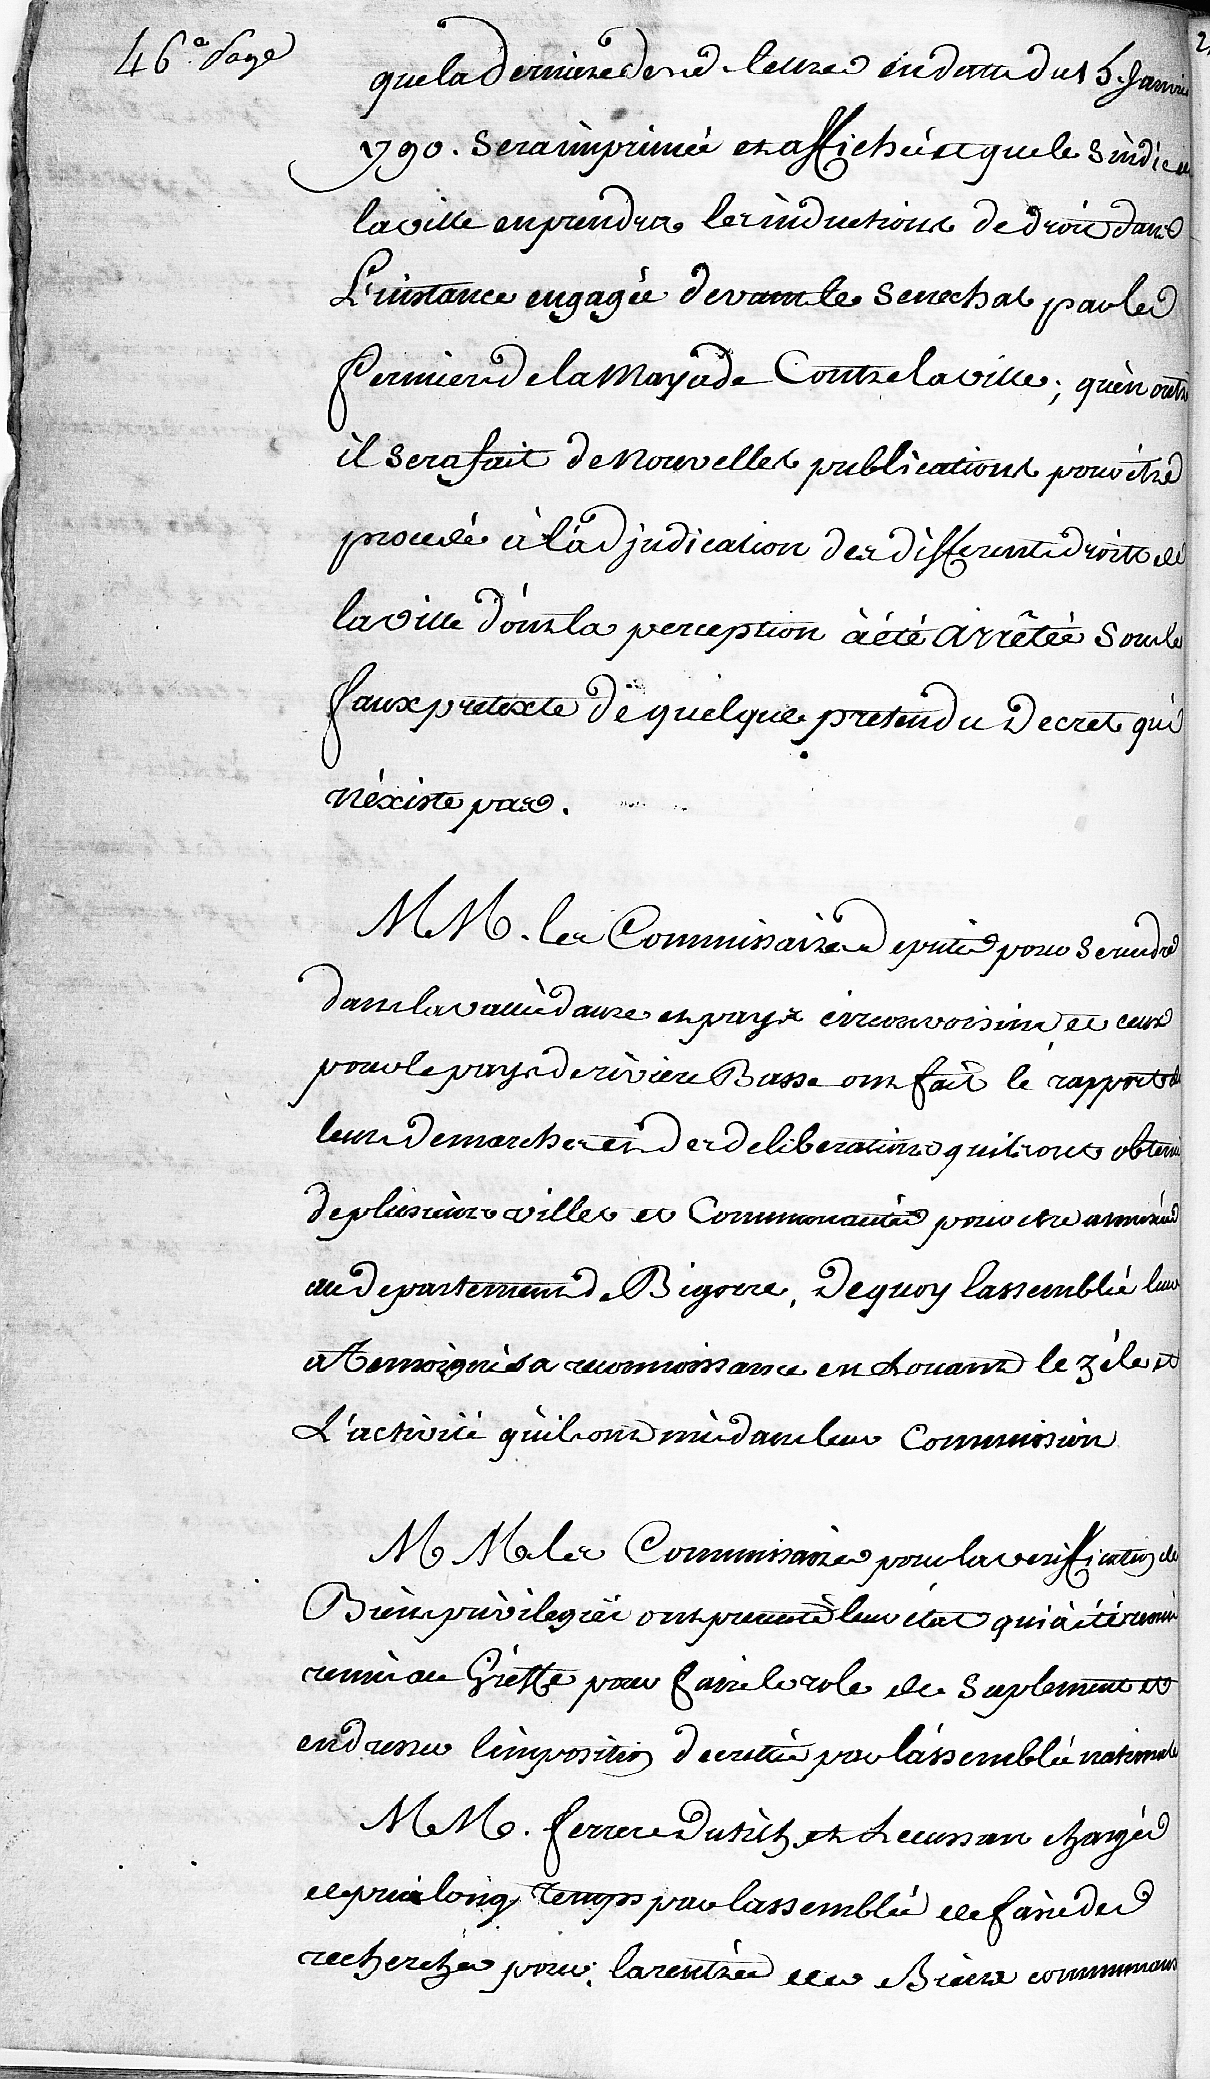 46.e Page
que la derniere desd. lettres en datte du 15. Janvier
1790. Sera imprimée et affichée et que le Sindic de
la ville en prendra les inductions de droit dans
L'instance engagée devant le Senechal par les
fermiers de la Mayade Contre la ville; qu'en outre
il Sera fait de Nouvelles publications pour être
procedé à l'adjudication des differents droits de
la ville dont la perception à été Arrêtée Sous le
faux pretexte de quelque pretendu Decret qui
n'éxiste pas.
MM. les Commissaires deputés pour Se rendre
dans la vallée daure et pays circonvoisins, et ceux
pour le pays de riviere Basse ont fait le rapport de
leurs demarches et des deliberations quils ont obtenu
de plusieurs villes et Communautés pour etre annexées
au departement de Bigorre, De quoy lassemblée leur
a temoigné sa reconnoissance en Louant le zéle et
L'activité qu'ils ont mis dans leur Commission
MM les Commissaires pour la verification des
Biens privilegiés ont presenté leur état qui à été remis
remis au Greffe pour faire le role de Suplement et
en dresser l'imposition decretée par l'assemblée nationale
MM. ferrere Dutilh et Lacussan chargés
depuis long temps par lassemblée de faire des
recherches pour la rentrée des Biens communaux